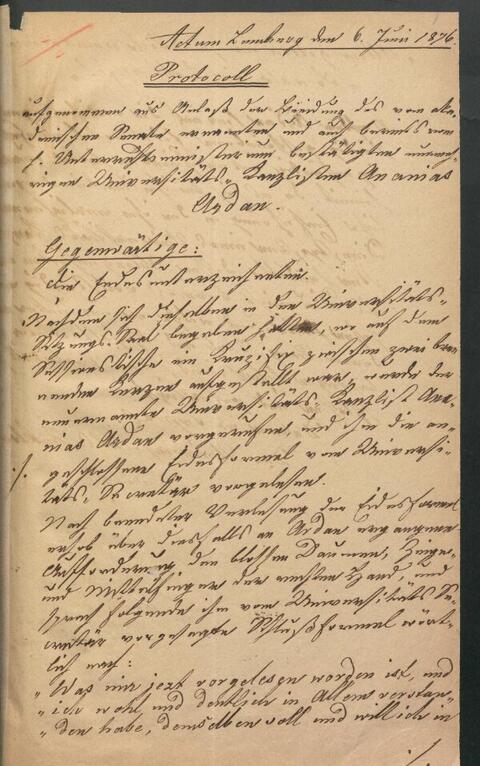 Actum Lemberg den 6. Juni 1876.
Protocoll
aufgenommen aus Anlaß der Beeidung des vom aka-
demischen Senate ernannten und auch bereits vom
h. Unterrichtsministerium bestätigten nunmeh-
rigen Universitäts-Kanzlisten Ananias
Ardan.
Gegenwärtige:
die Endesunterzeichneten.
Nachdem sich dieselben in den Universitäts-
Sitzungs-Saal begeben hatten, wo auf dem
Sessionstische ein Kruzifix zwischen zwei bren
nenden Kerzen aufgestellt war, wurde der
neuernannte Universitäts-Kanzlist Ana-
nias Ardan vorgerufen, und ihm die an-
./. geschlossene Eidesformel vom Universi-
täts-Secretär vorgelesen.
Nach beendeter Verlesung der Eidesformel
erhob über diesfalls an Ardan ergangene
Aufforderung den bloßen Daumen, Zeige-
und Mittelfinger der rechten Hand, und
sprach folgende ihm vom Universitäts Se-
cretär vorgesagte Schlußformel wört-
lich nach:
„Was mir jezt vorgelesen worden ist, und
„ich wohl und deutlich in Allem verstan-
„den habe, demselben soll und will ich in
./.